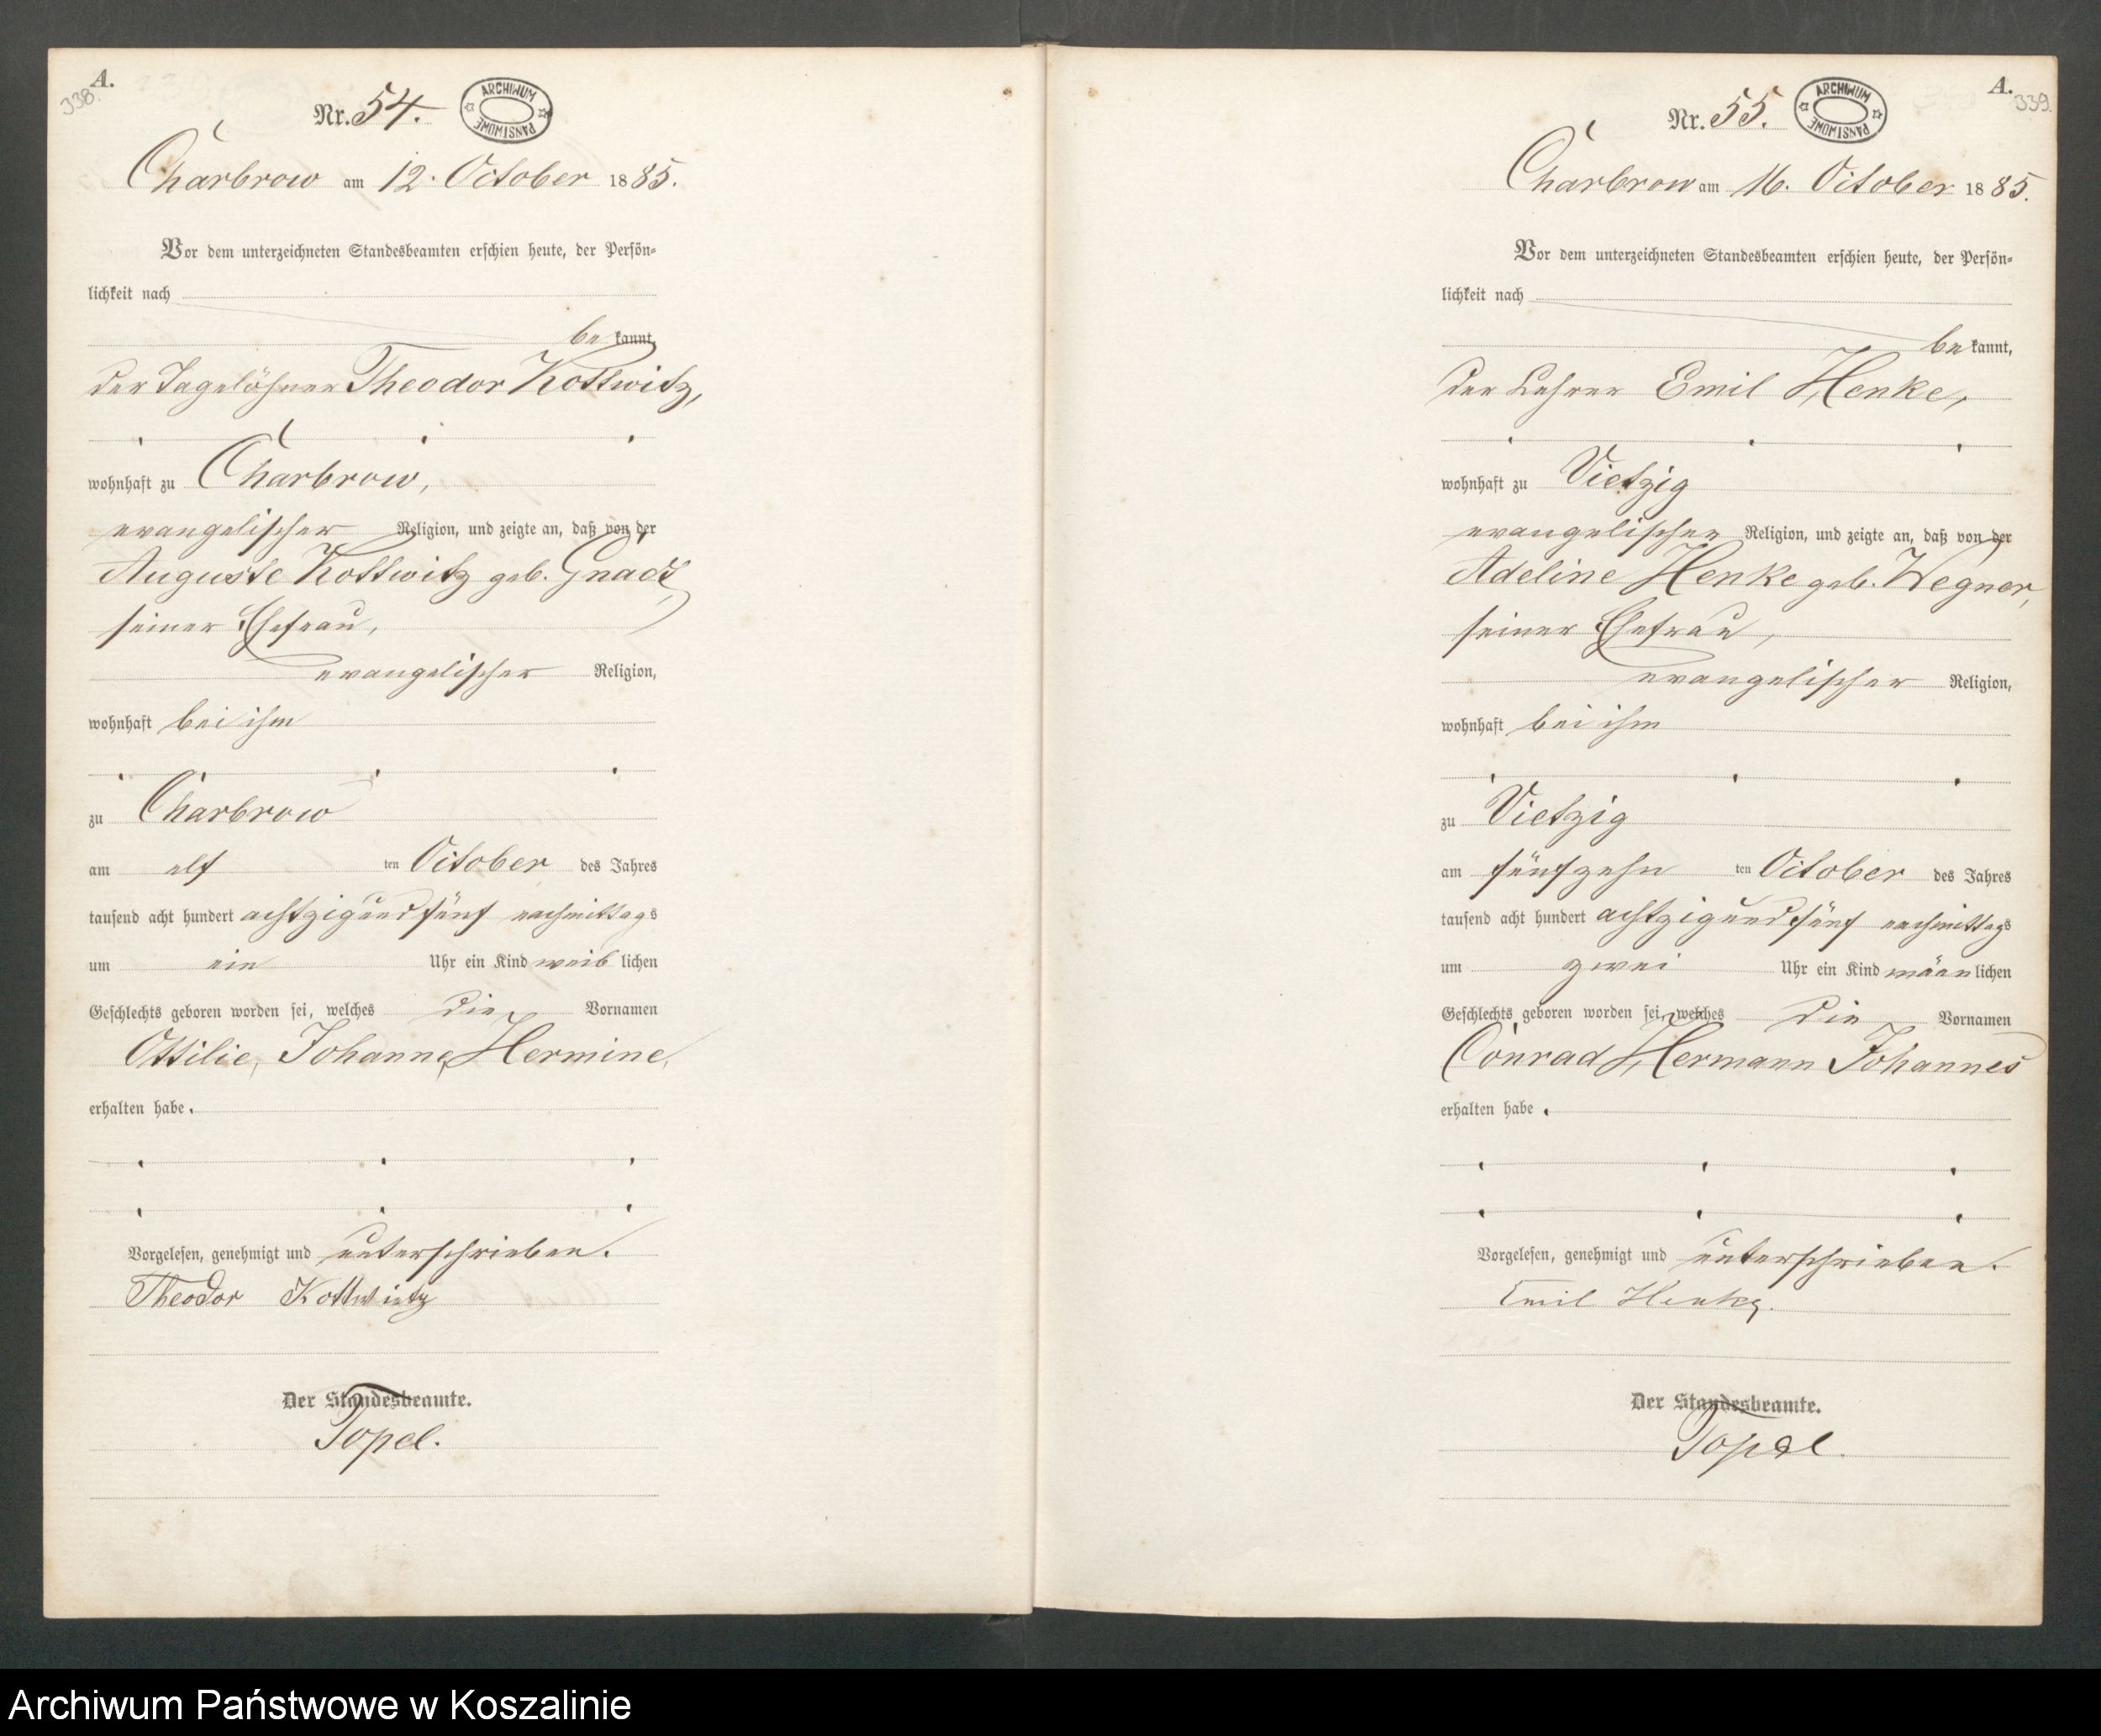 A.
338.
Nr. 54.
ARCHIWUM PAŃSTWOWE
Charbrow am 12. October 1885.
Vor dem unterzeichneten Standesbeamten erschien heute, der Persön-
lichkeit nach
be kannt,
der Tagelöhner Theodor Kottwitz,
wohnhaft zu Charbrow,
evangelischer Religion, und zeigte an, daß von der
Auguste Kottwitz geb. Gnadt,
seiner Ehefrau,
evangelischer Religion,
wohnhaft bei ihm
zu Charbrow
am elf ten October des Jahres
tausend acht hundert achtzig und fünf nachmittags
um ein Uhr ein Kind weib lichen
Geschlechts geboren worden sei, welches die Vornamen
Ottilie, Johanne, Hermine,
erhalten habe.
Vorgelesen, genehmigt und unterschrieben.
Theodor Kottwietz
Der Standesbeamte.
Topel.
A.
339.
Nr. 55.
ARCHIWUM PAŃSTWOWE
Charbrow am 16. October 1885.
Vor dem unterzeichneten Standesbeamten erschien heute, der Persön-
lichkeit nach
be kannt,
der Lehrer Emil Henke,
wohnhaft zu Vietzig
evangelischer Religion, und zeigte an, daß von der
Adeline Henke geb. Wegner,
seiner Ehefrau,
evangelischer Religion,
wohnhaft bei ihm
zu Vietzig
am fünfzehn ten October des Jahres
tausend acht hundert achtzig und fünf nachmittags
um zwei Uhr ein Kind männ lichen
Geschlechts geboren worden sei, welches die Vornamen
Conrad Hermann Johannes
erhalten habe.
Vorgelesen, genehmigt und unterschrieben.
Emil Henke.
Der Standesbeamte.
Topel.
Archiwum Państwowe w Koszalinie